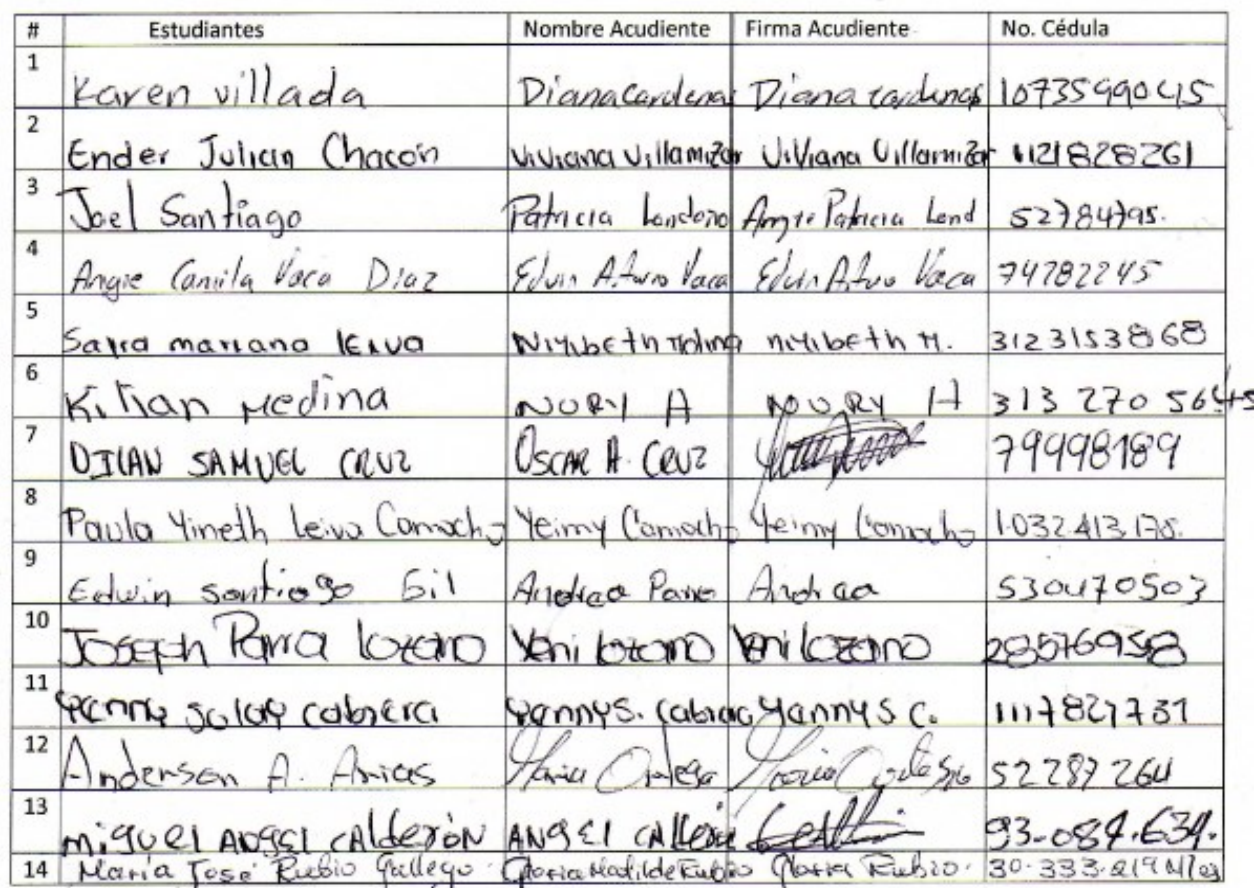 # Estudiantes Nombre Acudiente Firma Acudiente No. Cédula
1 Karen villada Diana Cardenas Diana Cardenas 1073599045
2 Ender Julian Chacón Viviana Villamizar Viviana Villamizar 1121828261
3 Joel Santiago Patricia Londoño Angie Patricia Lond 52784795.
4 Angie Camila Vaca Diaz Edwin Arturo Vaca Edwin Arturo Vaca 74782245
5 mariana Leiva 3123153868
6 Kilian Medina NURY A NURY A 313 270 5645
7 DILAN SAMUEL CRUZ OSCAR A. CRUZ 79998189
8 Paula Yineth Leiva Camacho Yeimy Camacho Yeimy Camacho 1.032.413.170.
9 Edwin santiago Gil Andrea Andrea 530470503
10 Joseph Parra Lozano Yeni Lozano Yeni Lozano
11 cabrera Yannys. cabrera Yannys C. 1117827731
12 Anderson A. Arias Maria Ortega Maria 52287264
13 miguel ANgel cAlderón ANgel 93-087.634.
14 María José Rubio Gallego Gloria Matilde Rubio Gloria Rubio. 30.333.219 Mzles